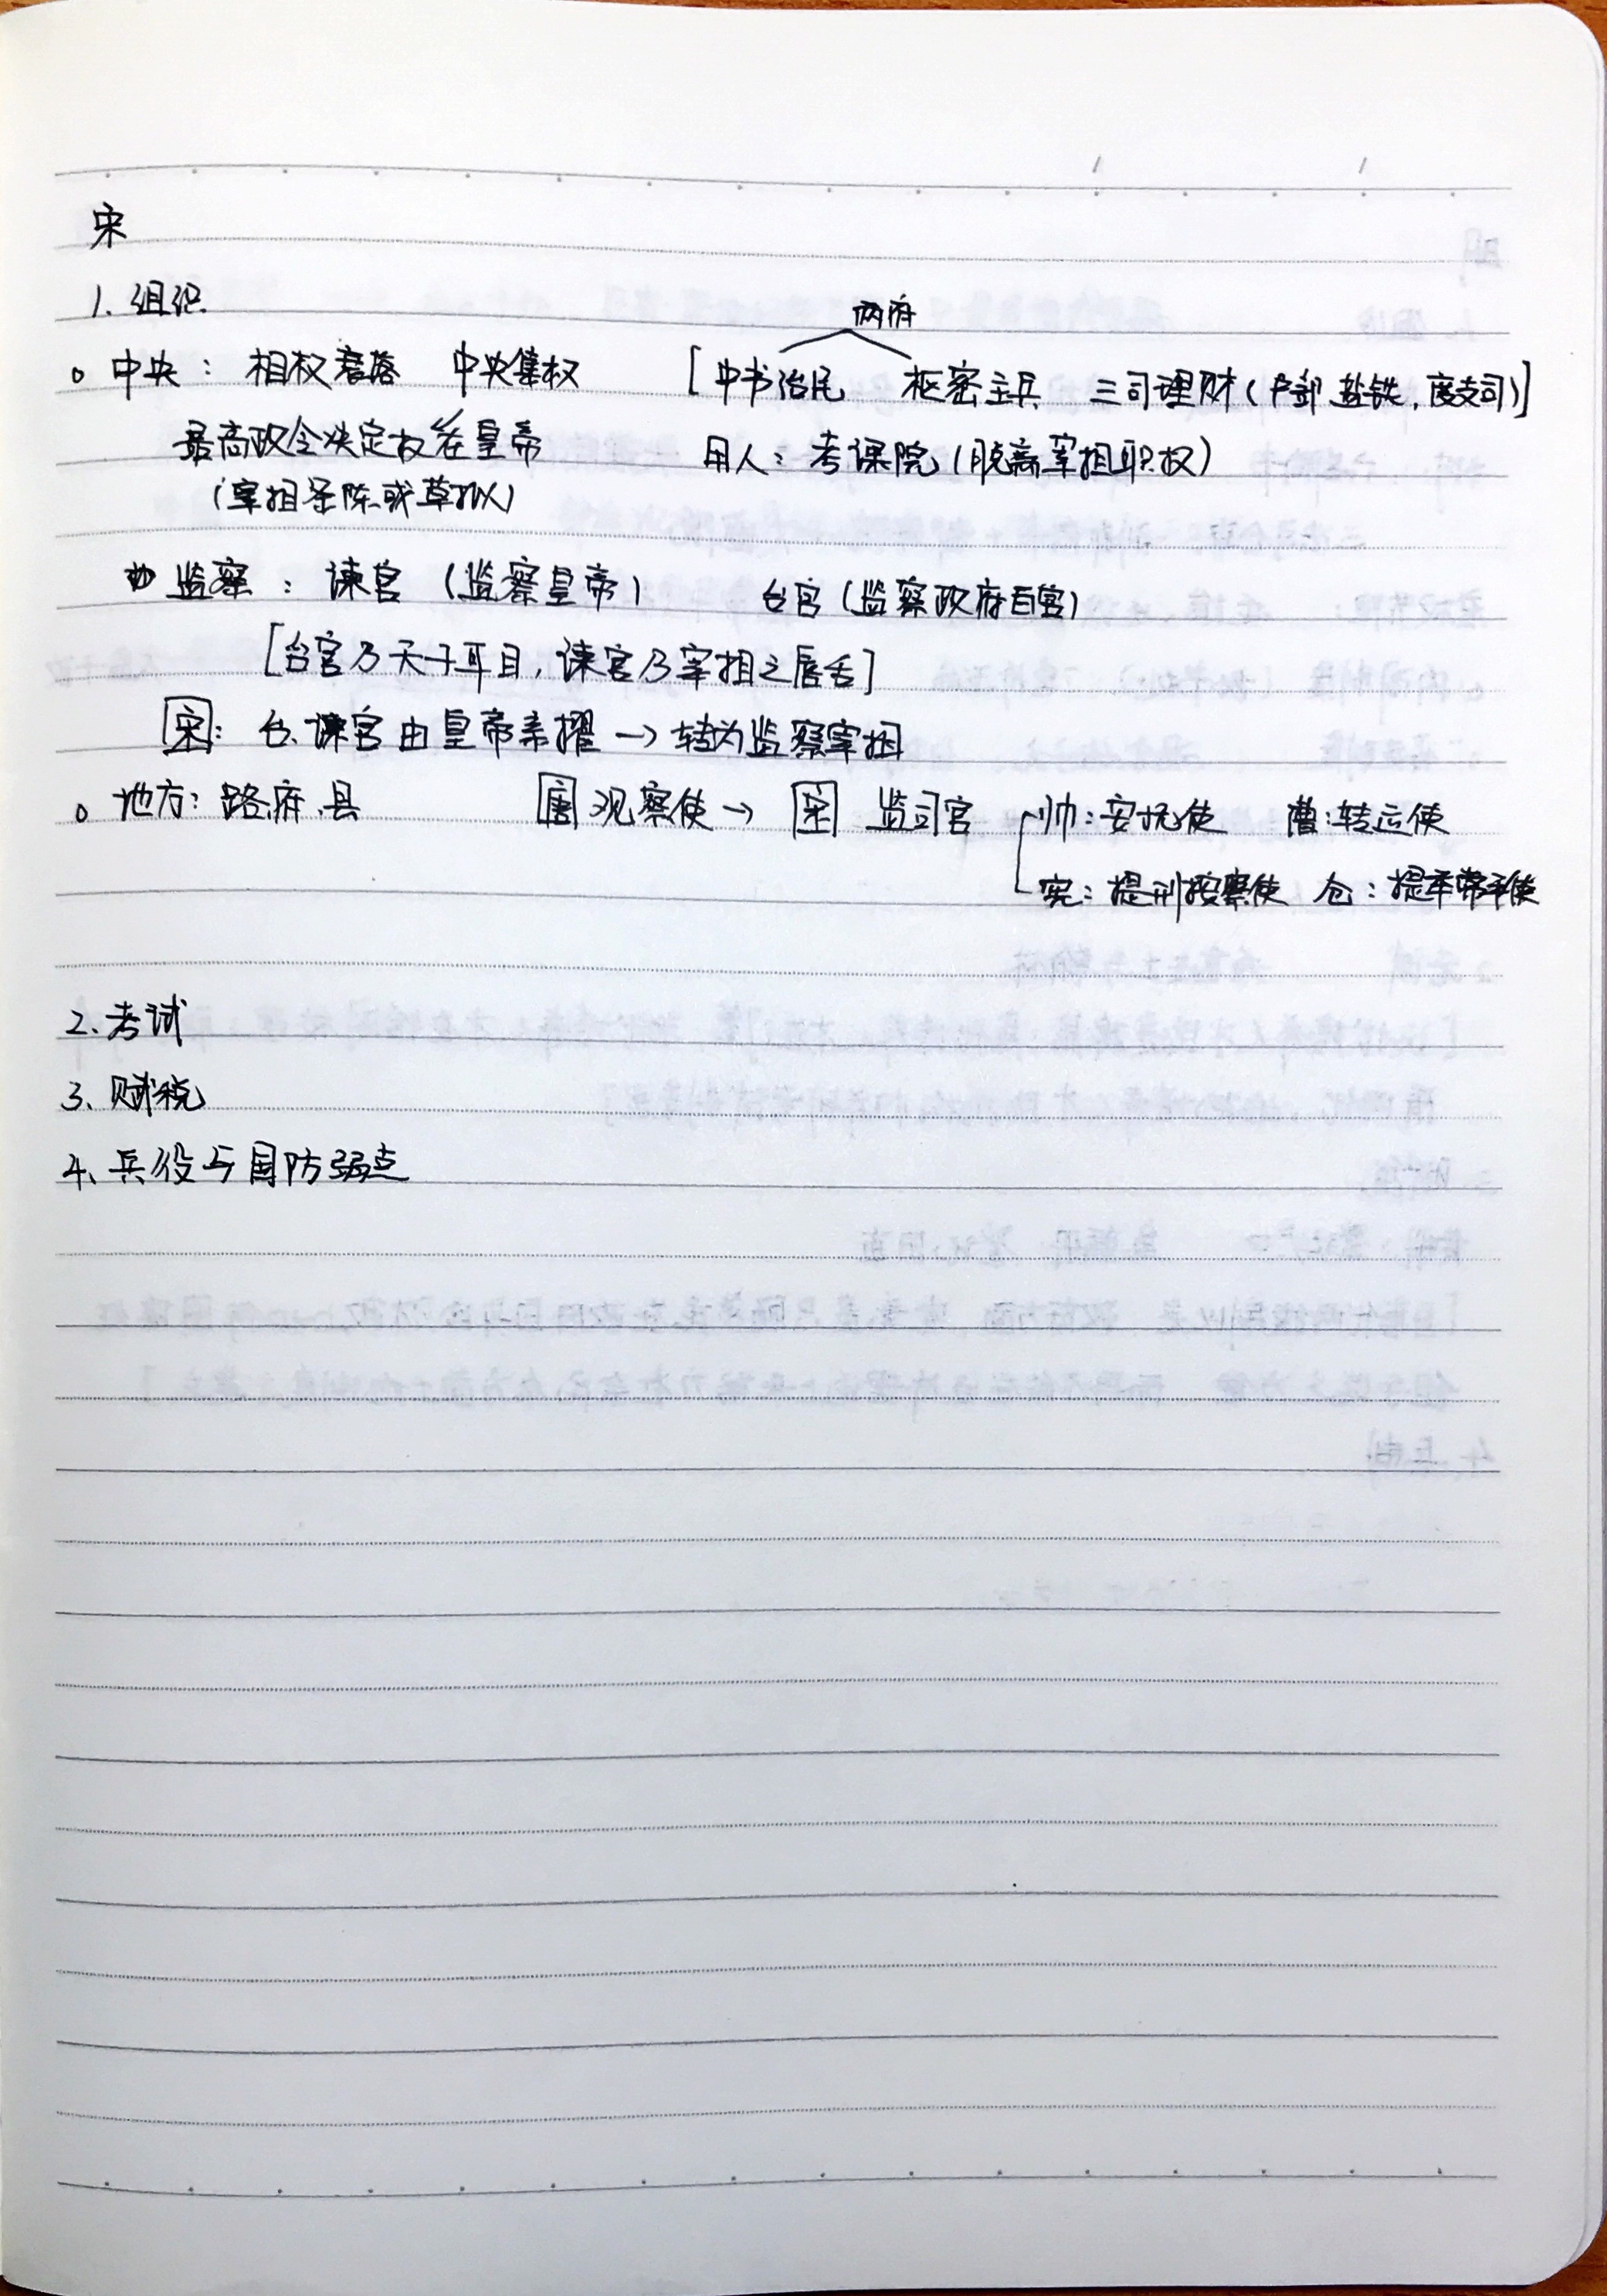 宋
1. 组织
两府
。中央：相权衰落 中央集权 [中书治民 枢密主兵 三司理财(户部,盐铁,度支司)]
最高政令决定权在皇帝 用人：考课院(脱离宰相职权)
(宰相条陈或草拟)
监察：谏官(监察皇帝) 台官(监察政府百官)
[台官乃天子耳目,谏官乃宰相之唇舌]
宋：台、谏官由皇帝亲擢→转为监察宰相
。地方：路、府、县 唐 观察使→ 宋 监司官 帅:安抚使 漕:转运使
宪：提刑按察使 仓：提举常平使
2. 考试
3. 赋税
4. 兵役与国防弱点